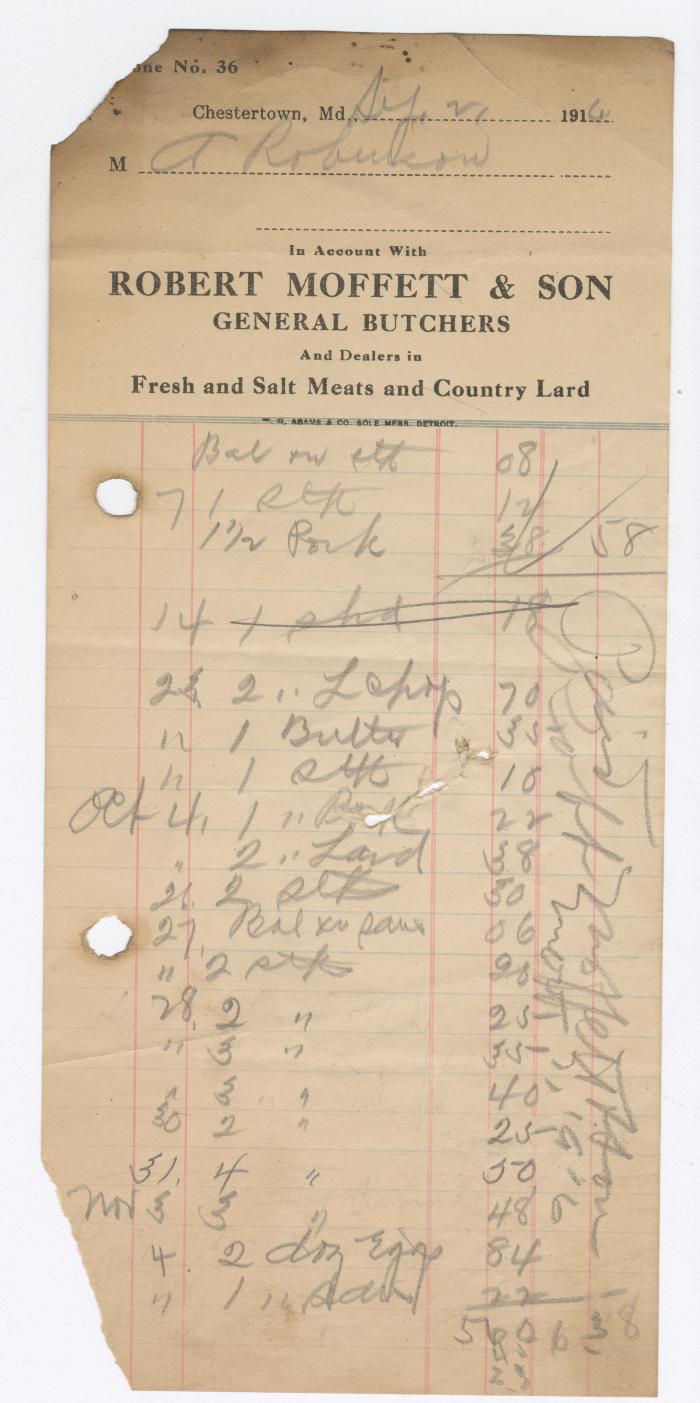 one No. 36
Chestertown, Md., Sep. 2, 1916
M A Robinson
In Account With
ROBERT MOFFETT & SON
GENERAL BUTCHERS
And Dealers in
Fresh and Salt Meats and Country Lard
W. G. ADAMS & CO. SOLE MFRS. DETROIT.
Bal on stk 08
7 1 stk 12
1 1/2 Pork 38 58
14 1 shd 18
23 2 " L chop 70
" 1 Butter 35
" 1 stk 18
Oct 4, 1 " Pork 22
" 2 " Lard 38
21 2 stk 50
27, Bal on saus 06
" 2 stk 20
28, 2 " 25
" 3 " 35
" 3 " 40
30 2 " 25
31, 4 " 50
Nov 3 3 " 48
4 2 doz Eggs 84
" 1 " saus 22
5 60 6 38
Paid
R Moffett & Son